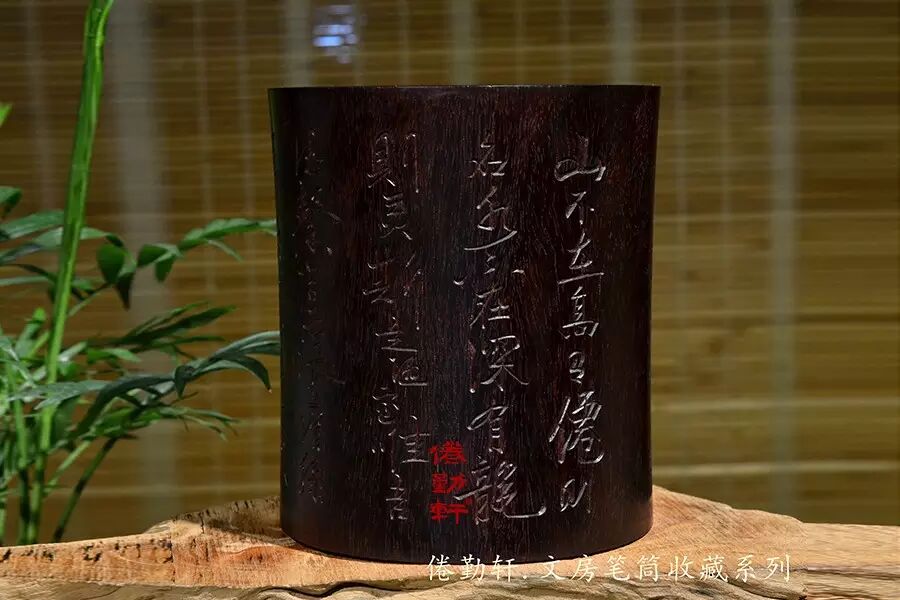 山不在高有僊則
名水不在深有龍
則靈斯是陋室惟吾
倦勤軒
倦勤轩.文房笔筒收藏系列